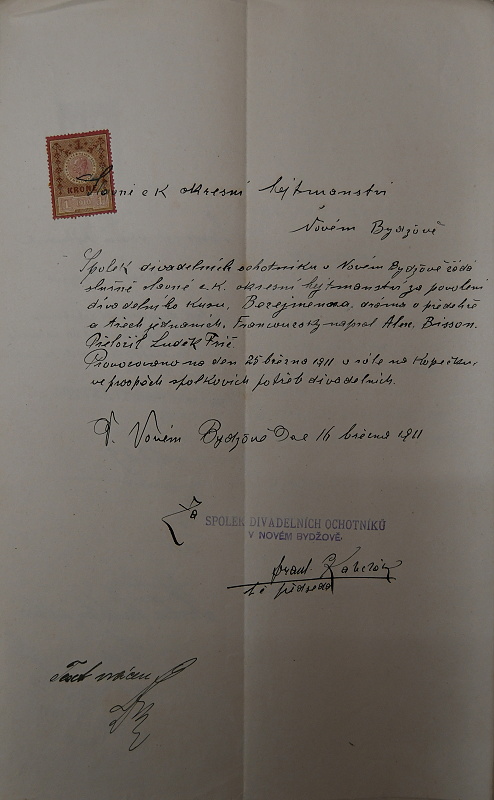 1
KRONE
1 1
Slavné c k okresní hejtmanství
v Novém Bydžově
Spolek divadelních ochotníku v Novém Bydžově žádá
slušně slavné c. k. okresní hejtmanství za povolení
divadelního kusu, Bezejmenná, dráma o předehře
a třech jednáních, Francouzsky napsal Alex. Bisson.
Přeložil Luděk Frič.
Provozováno na den 25 března 1911 v sále na Kopečku,
ve prospěch spolkovích potřeb divadelních.
V. Novém Bydžově Dne 16 března 1911
Za
SPOLEK DIVADELNÍCH OCHOTNÍKŮ
V NOVÉM BYDŽOVĚ.
Frant.
předseda